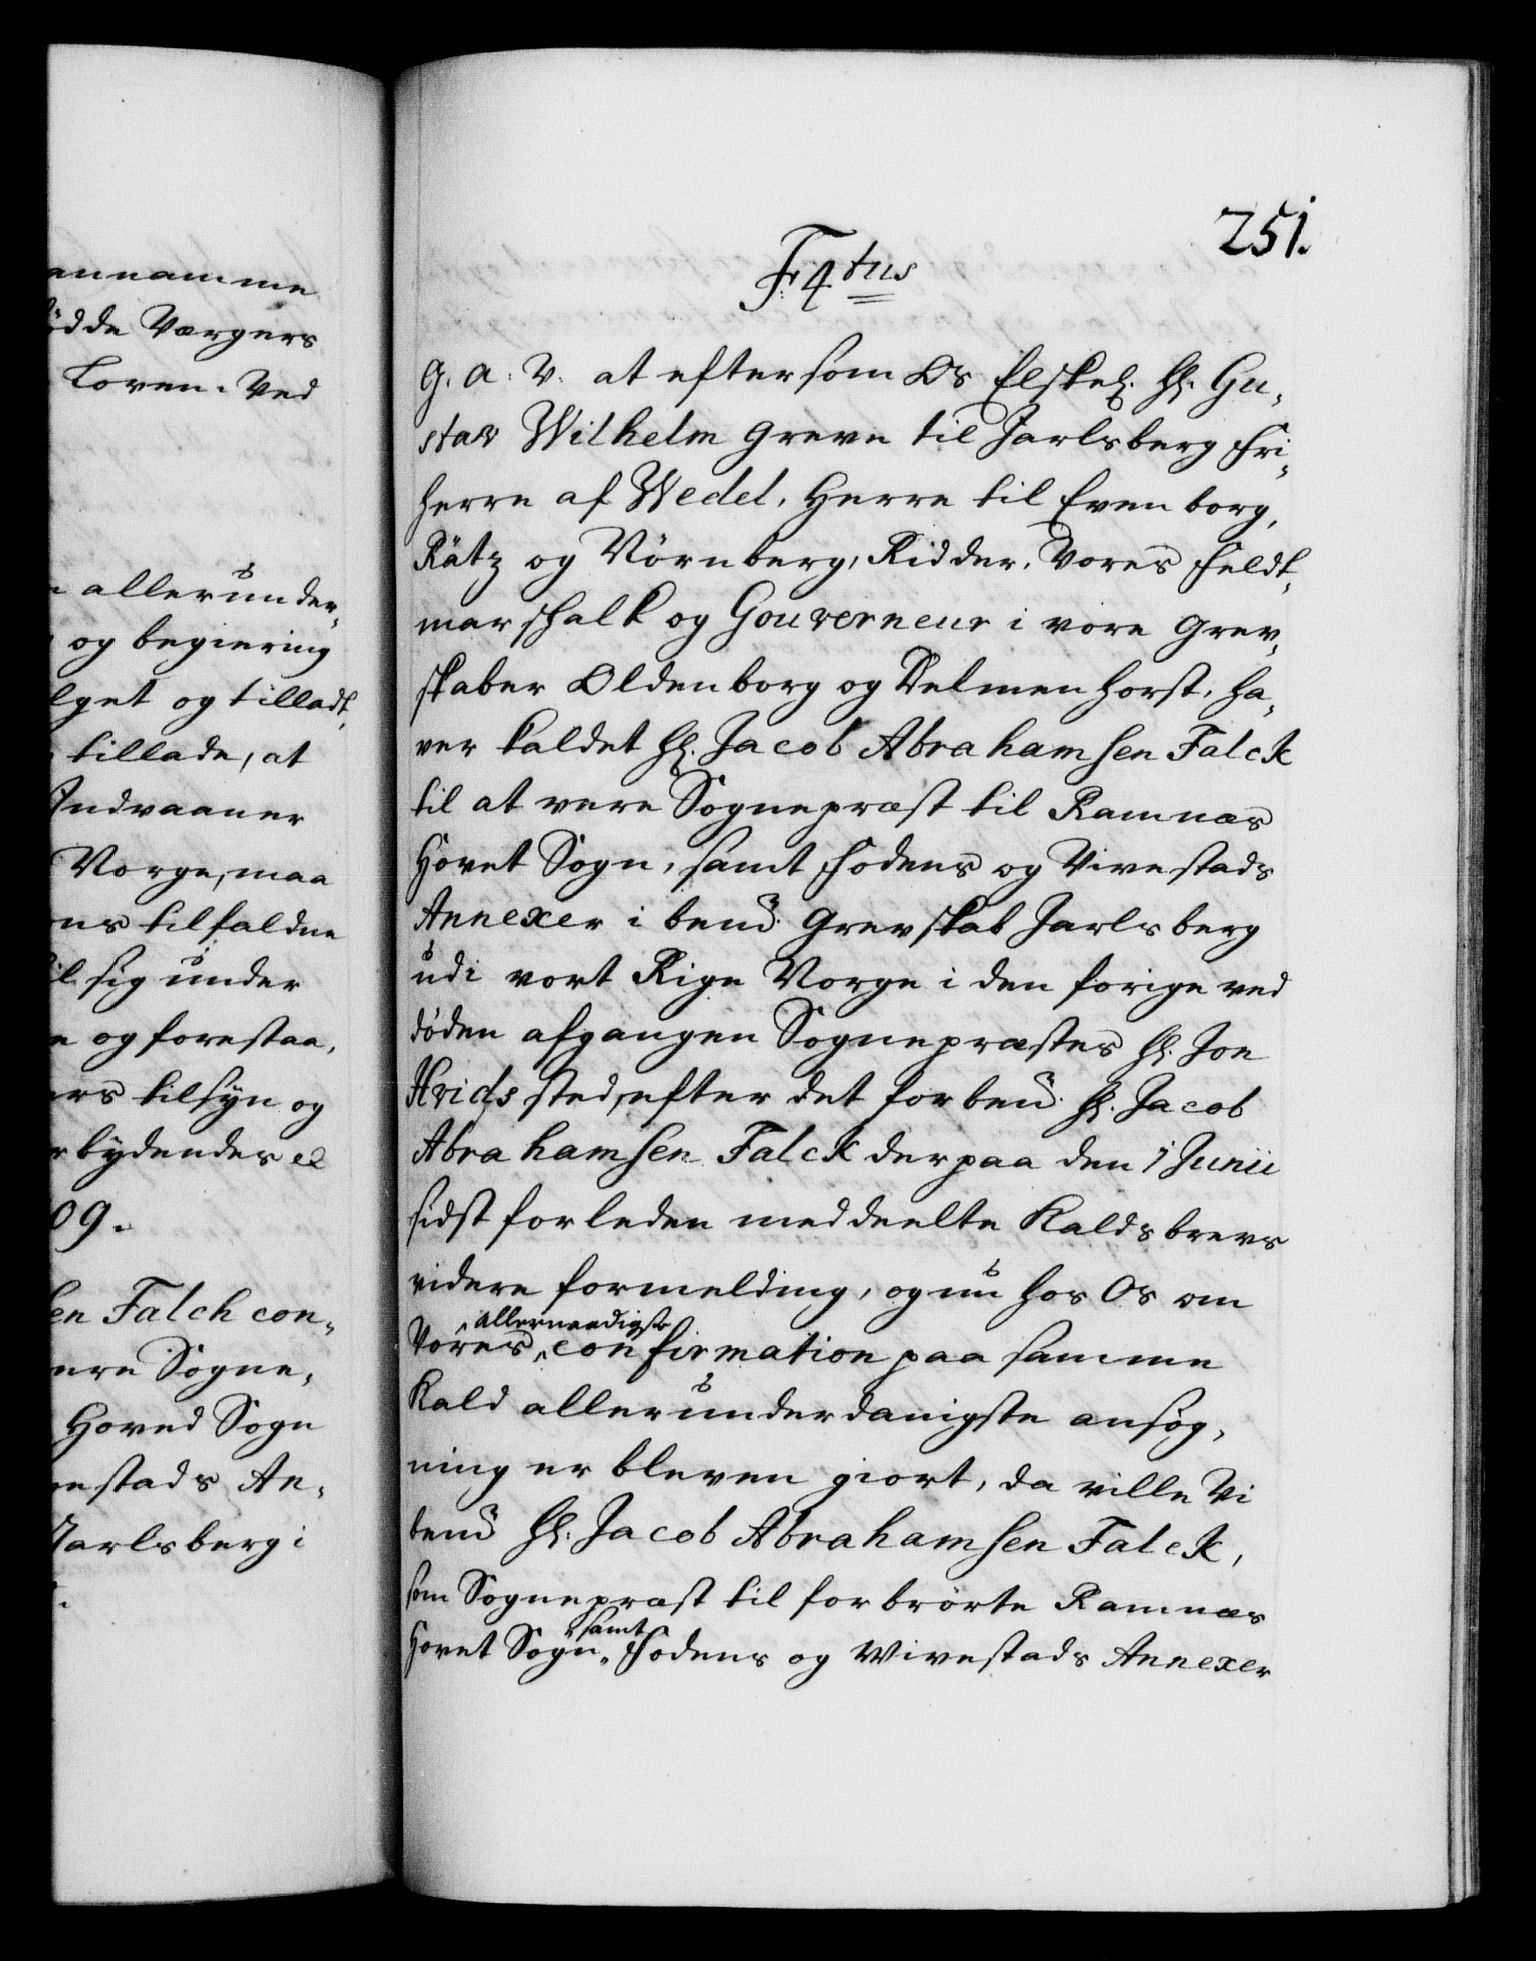 annamme
ødde Værgers
Loven. Ved
allerunder,
og begiering
lget og tilladt,
tillade, at
Indvaaner
Norge, maa
ns tilfaldne
il sig under
e og forestaa,
ers tilsyn og
rbydendes et
09.
en Falch con,
ere Sogne,
Hoved Sogn
estads An,
Jarlsberg i
251.
Fr 4tus
G. A. V. at eftersom Os Elskel. Hr. Gu,
stav Wilhelm Greve til Jarlsberg Fri,
herre af Wedel, Herre til Evenborg,
Rätz og Nörnberg, Ridder, Vores Feldt,
marschalk og Gouverneur i vore Grev,
skaber Oldenborg og Delmenhorst, ha,
ver kaldet Hr. Jacob Abrahamsen Falck
til at vere Sognepræst til Ramnæs
Hovet Sogn, samt Fodens og Vivestads
Annexer i bemd. Grevskab Jarlsberg
udi vort Rige Norge i den forige ved
døden afgangen Sognepræstes Hr. Jon
Hvids sted, efter det forbemd. Hr. Jacob
Abrahamsen Falck derpaa den 1 Junii
sidst forleden meddeelte Kaldsbrevs
videre formelding, og nu hos Os om
Vores allernaadigste confirmation paa samme
Kald allerunderdanigste ansøg,
ning er bleven giort, da ville Vi
bemd Hr. Jacob Abrahamsen Falck,
som Sognepræst til forbrörte Ramnæs
Hovet Sogn, samt Fodens og Vivestads Annexer